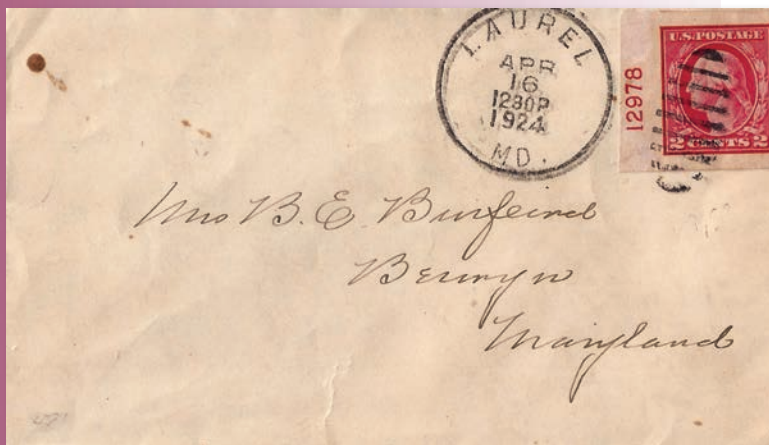 LAUREL
APR
16
1230P
1924
MD.
U.S. POSTAGE
12978
2 CENTS 2
Mrs B. E. Burfeind
Berwyn
Maryland